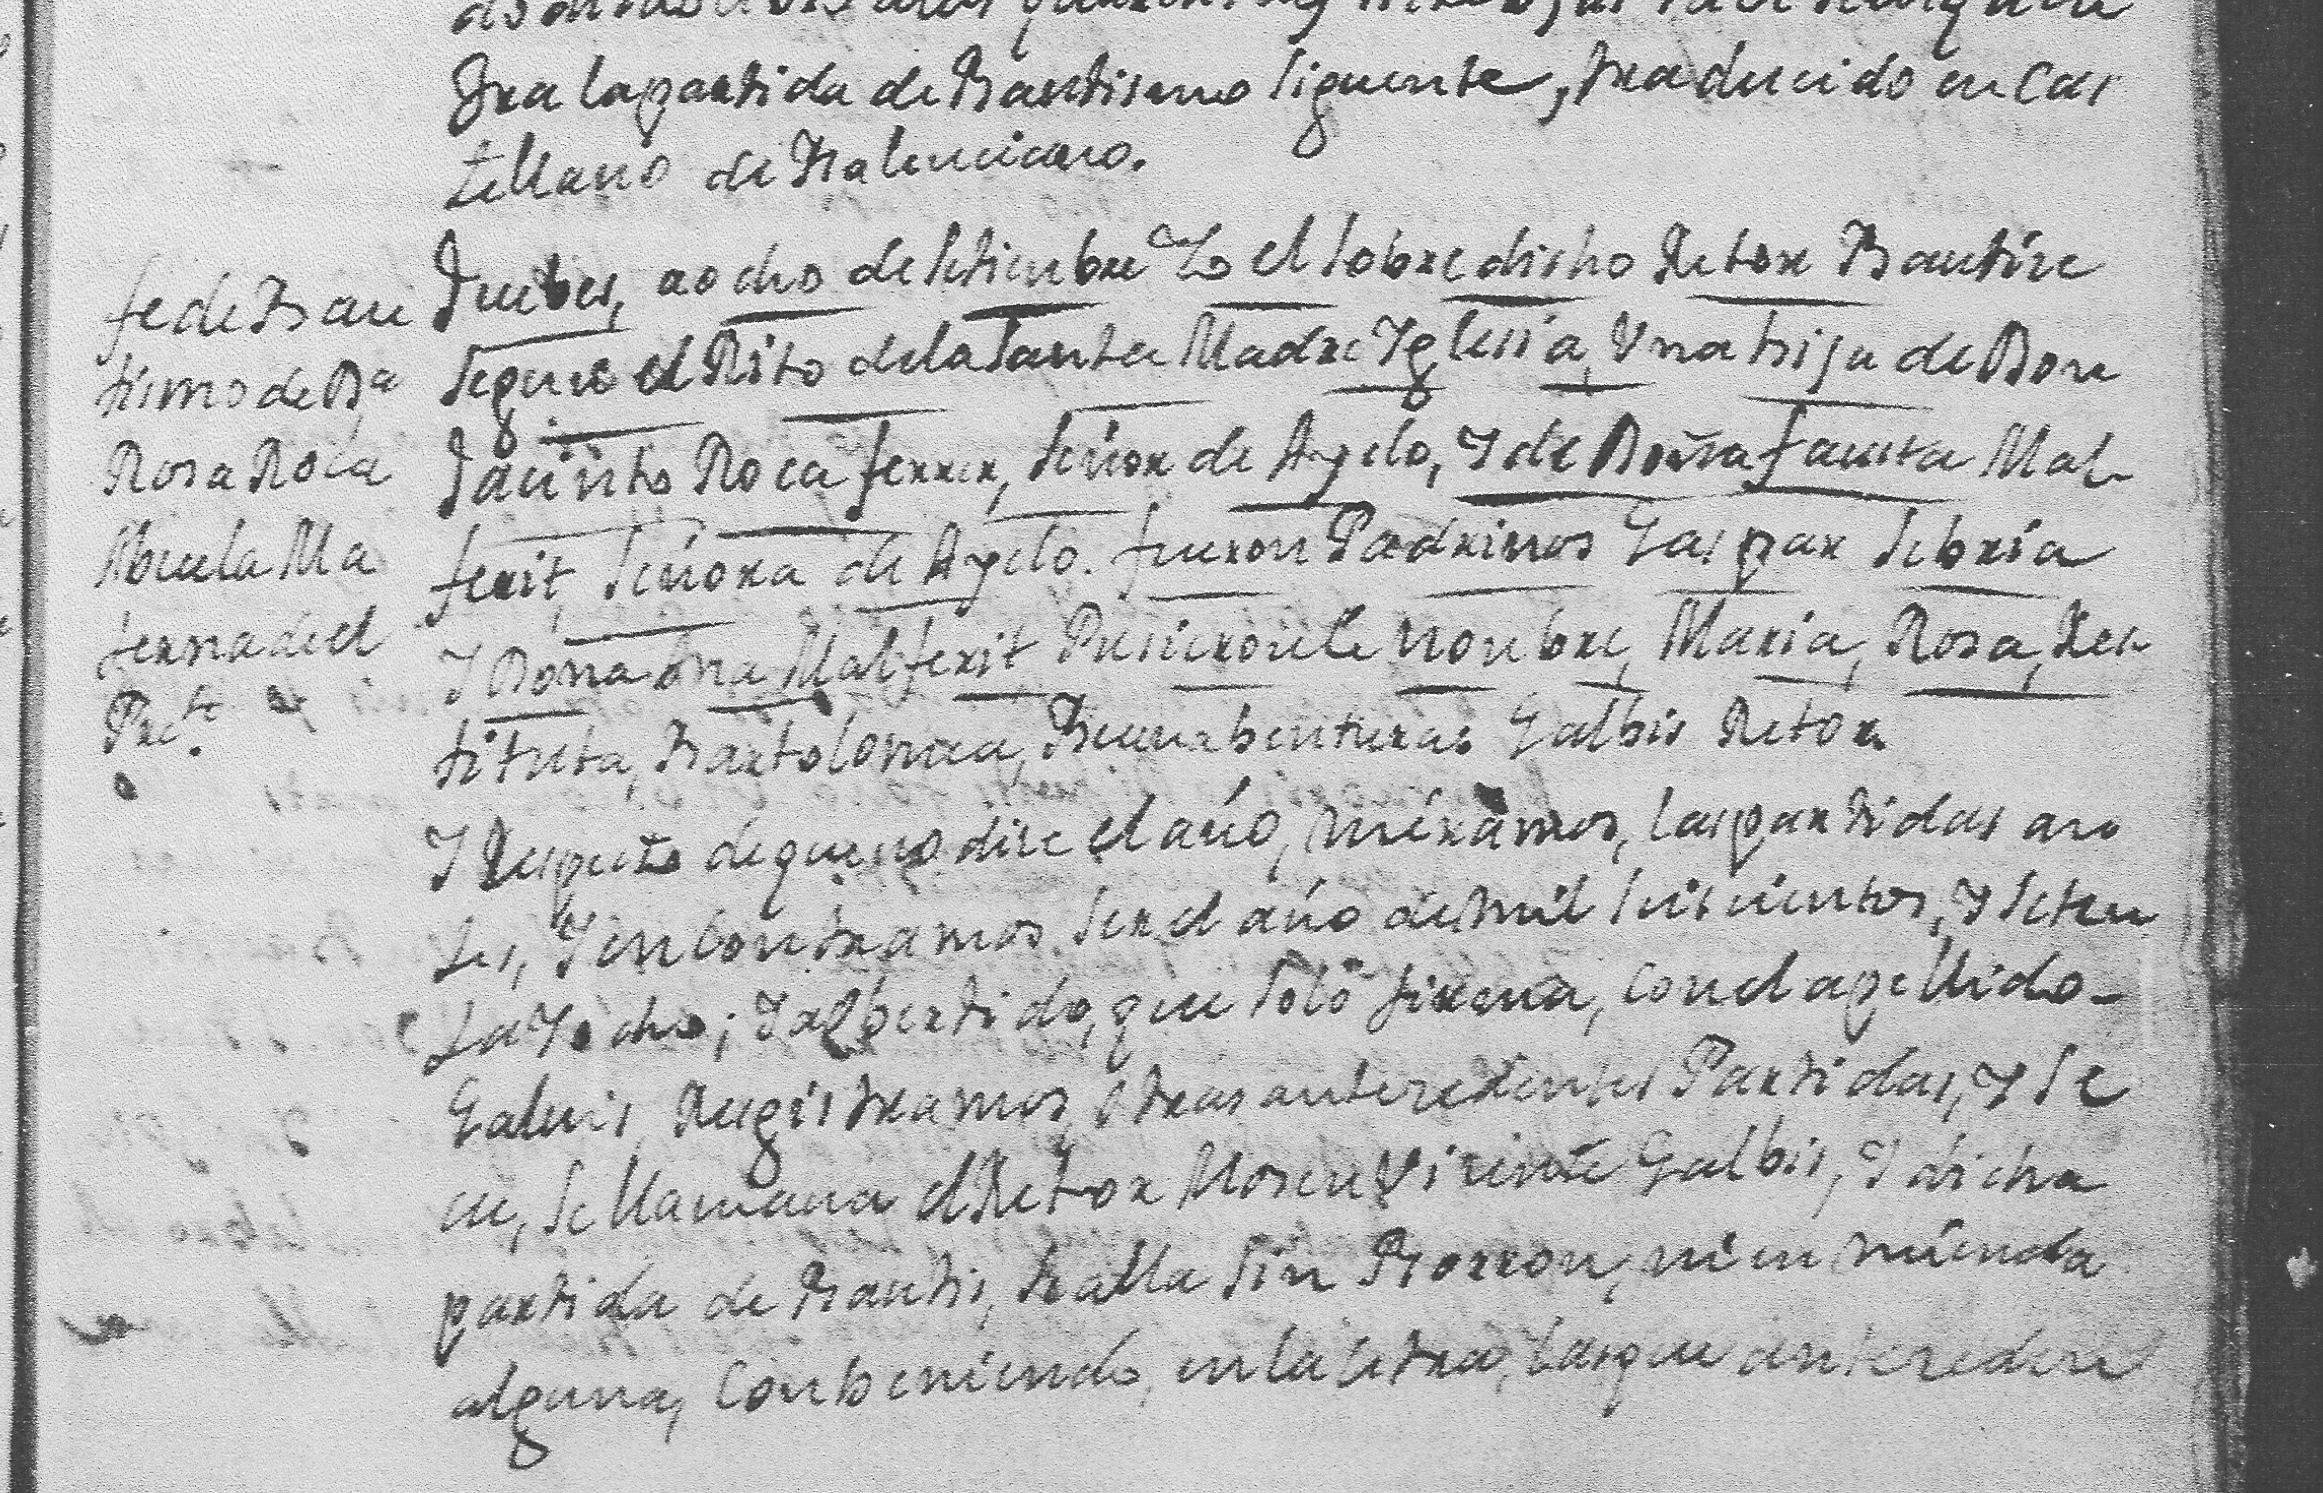 tra la partida de Bautismo siguiente, traducido en Cas
tellano de Balenciano.
fe de Bau
tismo de Da
Rosa Roca
Abuela Ma
terna del
Prete.
Juebes, a ocho de Setienbre Yo el sobredicho Retor Bautise
segun el Rito de la Santa Madre Yglesia, Una hija de Don
Jacinto Roca ferrer, Señor de Ayelo, Y de Doña fausta Mal
ferit, Señora de Ayelo. fueron Padrinos Gaspar Sebria
Y Doña Ana Malferit Pusieronle nonbre, Maria, Rosa, Res
tituta, Bartolomea, Buenabentura Galbis Retor.
Y Respeto de que no dise el año, miramos, las partidas an
tes, Y encontramos ser el año de mil seis cientos, Y seten
ta Y ocho; Y alBertido, que solo firma, con el apellido
Galuis, Registramos, otras antecedentes Partidas, Y se
ue, se llamaua el Retor Mosen Visente Galbis, Y dicha
partida de Bautis, halla sin Borron, ni enmienda
alguna, Conbeniendo, en la letra, las que anteceden